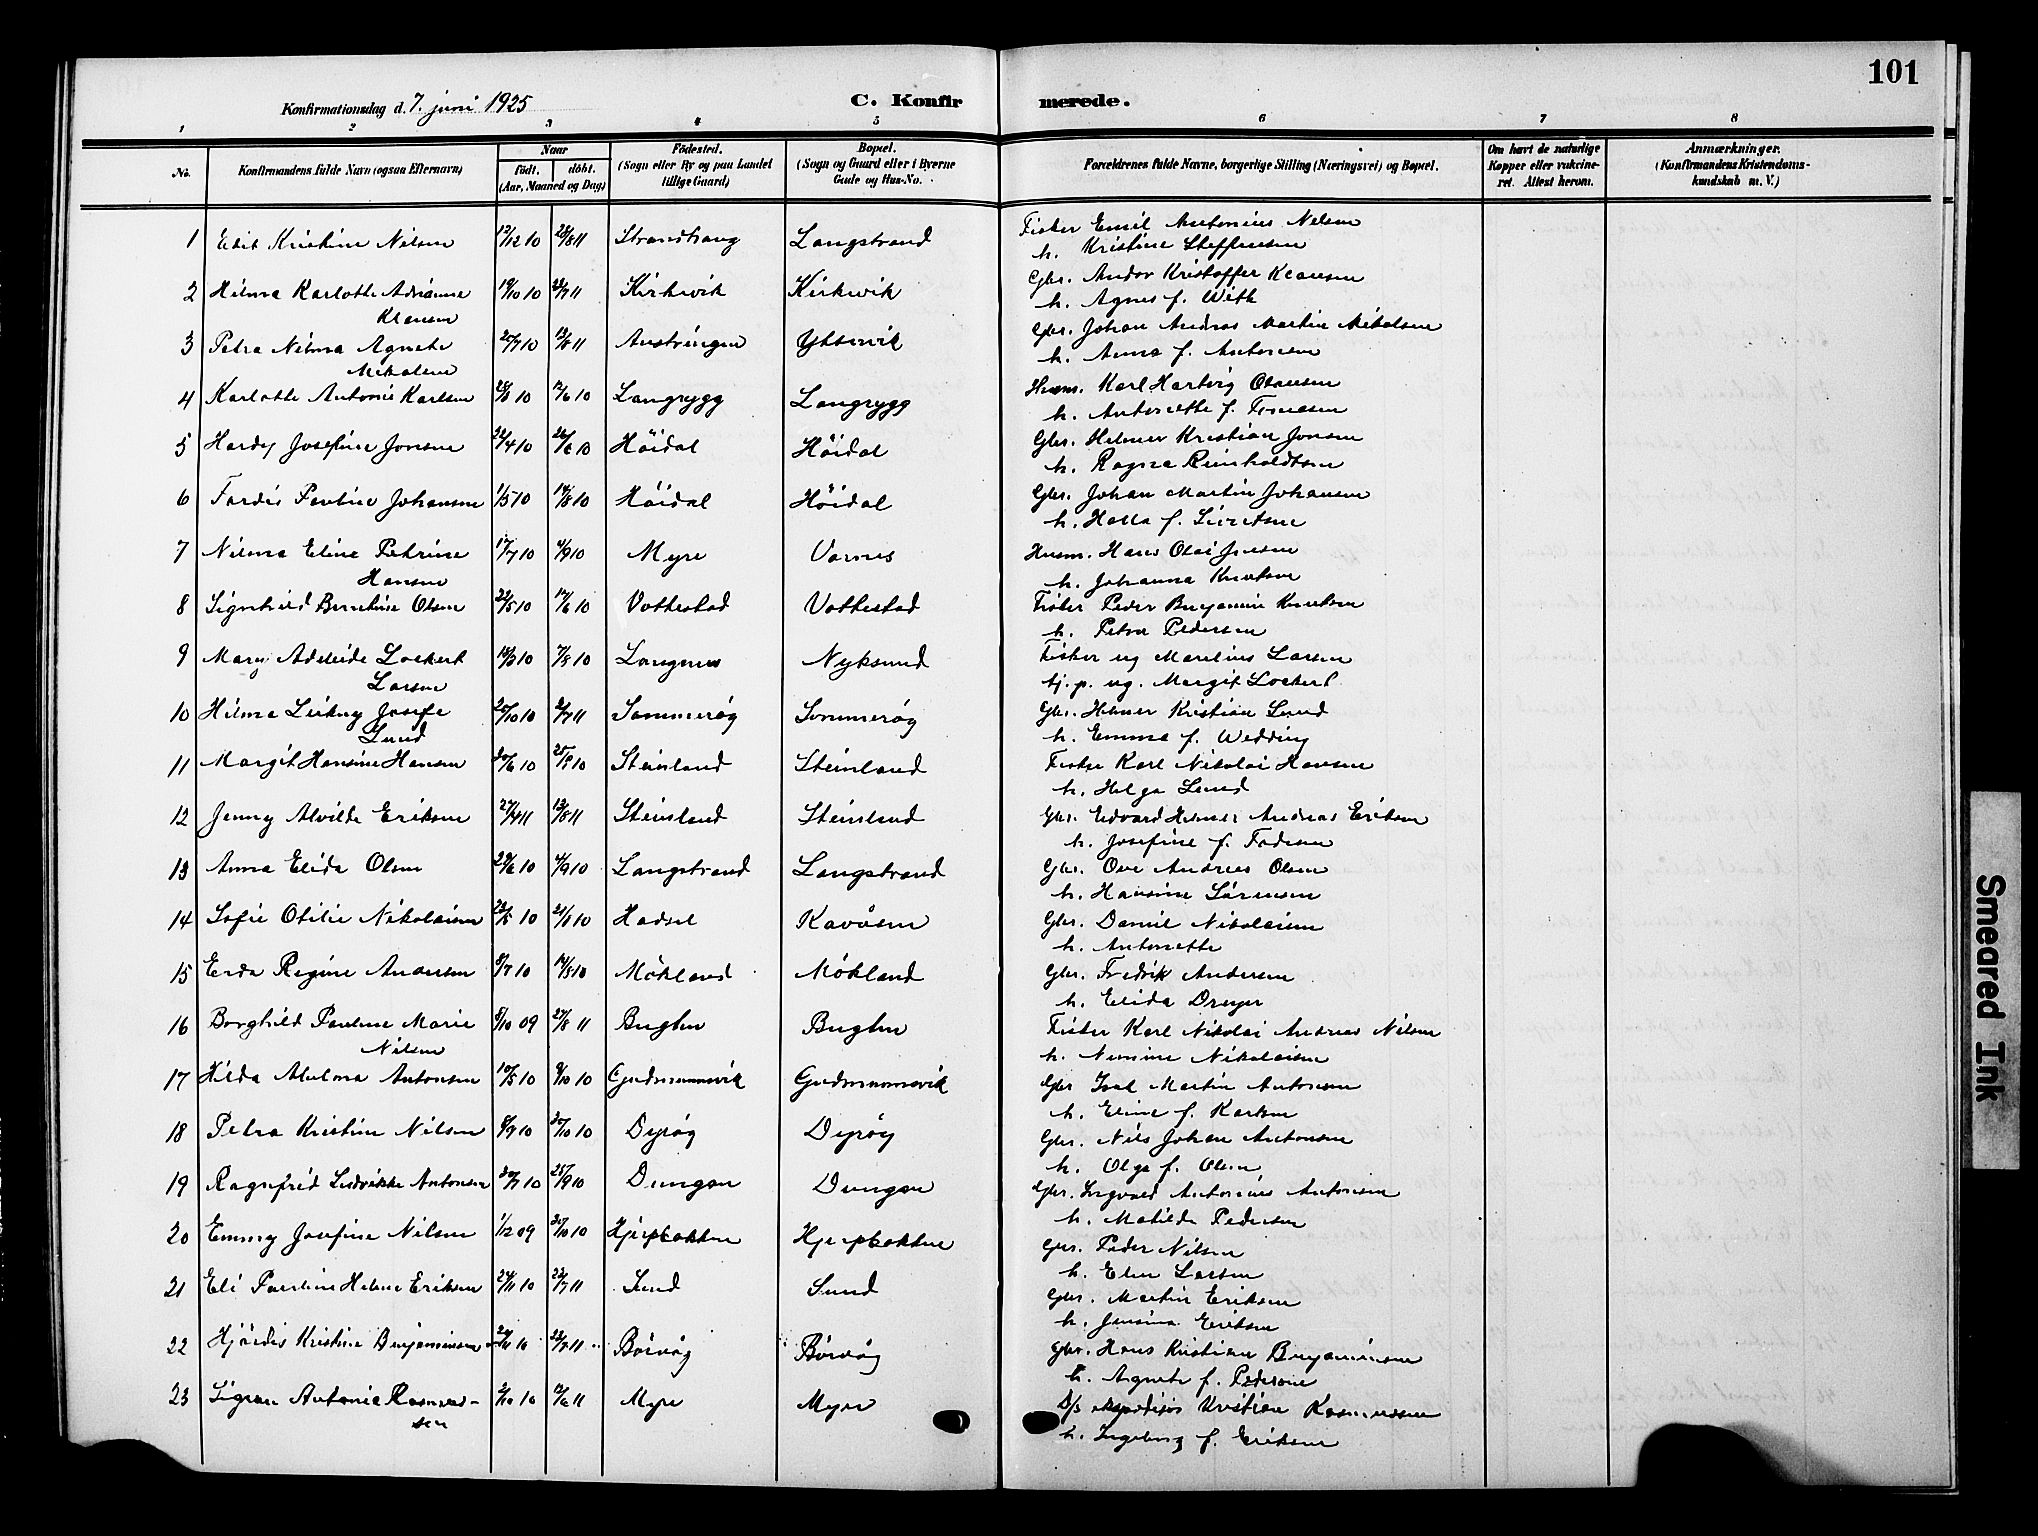 101
Konfirmationsdag d. 7. juni 1925
C. Konfirmerede.
1 2 3 4 5 6 7 8
No.
Konfirmandens fulde Navn (ogsaa Efternavn)
Naar
födt. döbt.
(Aar, Maaned og Dag)
Födested.
(Sogn eller By og paa Landet
tillige Gaard)
Bopæl.
(Sogn og Gaard eller i Byerne
Gade og Hus-No.
Forældrenes fulde Navne, borgerlige Stilling (Næringsvei) og Bopæl.
Om havt de naturlige
Kopper eller vakcine-
ret. Attest herom.
Anmærkninger.
(Konfirmandens Kristendoms-
kundskab m. V.)
1 Edit Kristine Nilsen 12/12 10 28/8 11 Strandhaug Langstrand Fisker Emil Antonius Nilsen
h. Kristine Steffensen
2 Hilma Karlotte Adrianne 19/10 10 Kirkevik Kirkevik Gbr. Andor Kristoffer Klausen
Klausen h. Agnes f. With
3 Petra Nilma Agnete 13/8 11 Austringen Yttervik Gbr. Johan Andreas Martin Mikalsen
Mikalsen h. Anna f. Antonsen
4 Karlotte Antonie Karlsen 12/6 10 Langrygg Langrygg Husm. Karl Hartvig Olausen
h. Antonette f.
5 Hardy Josefine Jonsen 22/4 10 26/6 10 Höidal Höidal Gbr. Helmer Kristian Jonsen
h. Ragna Reinholdtsen
6 Tordis Pauline Johansen 1/5 10 14/8 10 Höidal Höidal Gbr. Johan Martin Johansen
h. Halla f. Sivertsen
7 Nilma Eline Petrine 17/7 10 4/9 10 Myre Varnes Husm. Hans Olai Jensen
Hansen h. Johanna Knutsen
8 Signhild Berntine Olsen 22/5 10 12/6 10 Vottestad Vottestad Fisker Peder Benjamin Knutsen
h. Petra Pedersen
9 Mary Adeleide Lockert 7/8 10 Langnes Nyksund Fisker ug Marelius Larsen
Larsen tj.p. ug. Margit Lockert
10 Hilma Leikny Josefe 25/10 10 2/7 11 Sommerøy Sommerøy Gbr. Helmer Kristian Lund
Lund h. Emma f. Wedding
11 Margit Hansine Hansen 30/6 10 Steinland Steinland Fisker Karl Nikolai Hansen
h. Helga Lund
12 Jenny Alvilde Eriksen 27/4 11 13/8 11 Steinland Steinland Gbr. Edvard Helmer Andreas Eriksen
h. Josefine f.
13 Anna Elida Olsen 29/6 10 4/9 10 Langstrand Langstrand Gbr. Ove Andreas Olsen
h. Hansine Sörensen
14 Sofie Otilie Nikolaisen 23/5 10 21/8 10 Hadsel Kavåsen Gbr. Daniel Nikolaisen
h. Antonette
15 Erda Regine Andersen 8/7 10 14/8 10 Mökland Mökland Gbr. Fredrik Andersen
h. Elida Dreyer
16 Borghild Pauline Marie 8/10 09 27/8 11 Bugten Bugten Fisker Karl Nikolai Andreas Nilsen
Nilsen h. Numine Nikolaisen
17 Hilda Alelma Antonsen 10/5 10 9/10 10 Gudmunsvik Gudmunsvik Gbr Isak Martin Antonsen
h. Eline f. Karlsen
18 Petra Kristine Nilsen 8/9 10 30/10 10 Dyröy Dyröy Gbr. Nils Johan Antonsen
h. Olga f. Olsen
19 Ragnfrid Ludvikke Antonsen 30/7 10 25/9 10 Dungan Dungan Gbr. Ingvald Antonius Antonsen
h. Matilde Pedersen
20 Emmy Josefine Nilsen 1/12 09 30/10 10 Hjerpbakken Hjerpbakken Gbr. Peder Nilsen
h. Elen Larsen
21 Eli Pauline Helene Eriksen 24/11 10 23/7 11 Sund Sund Gbr. Martin Eriksen
h. Jensina Eriksen
22 Hjördis Kristine Benjaminsen 29/11 10 23/7 11 Börvåg Börvåg Gbr. Hans Kristian Benjaminsen
h. Agnete f. Pedersen
23 Sigrun Antonie Rasmus- 2/10 10 12/6 11 Myre Myre D/s ekspeditör Kristian Rasmussen
sen h. Ingeborg f. Eriksen
Smeared Ink